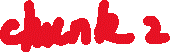 chunk 2